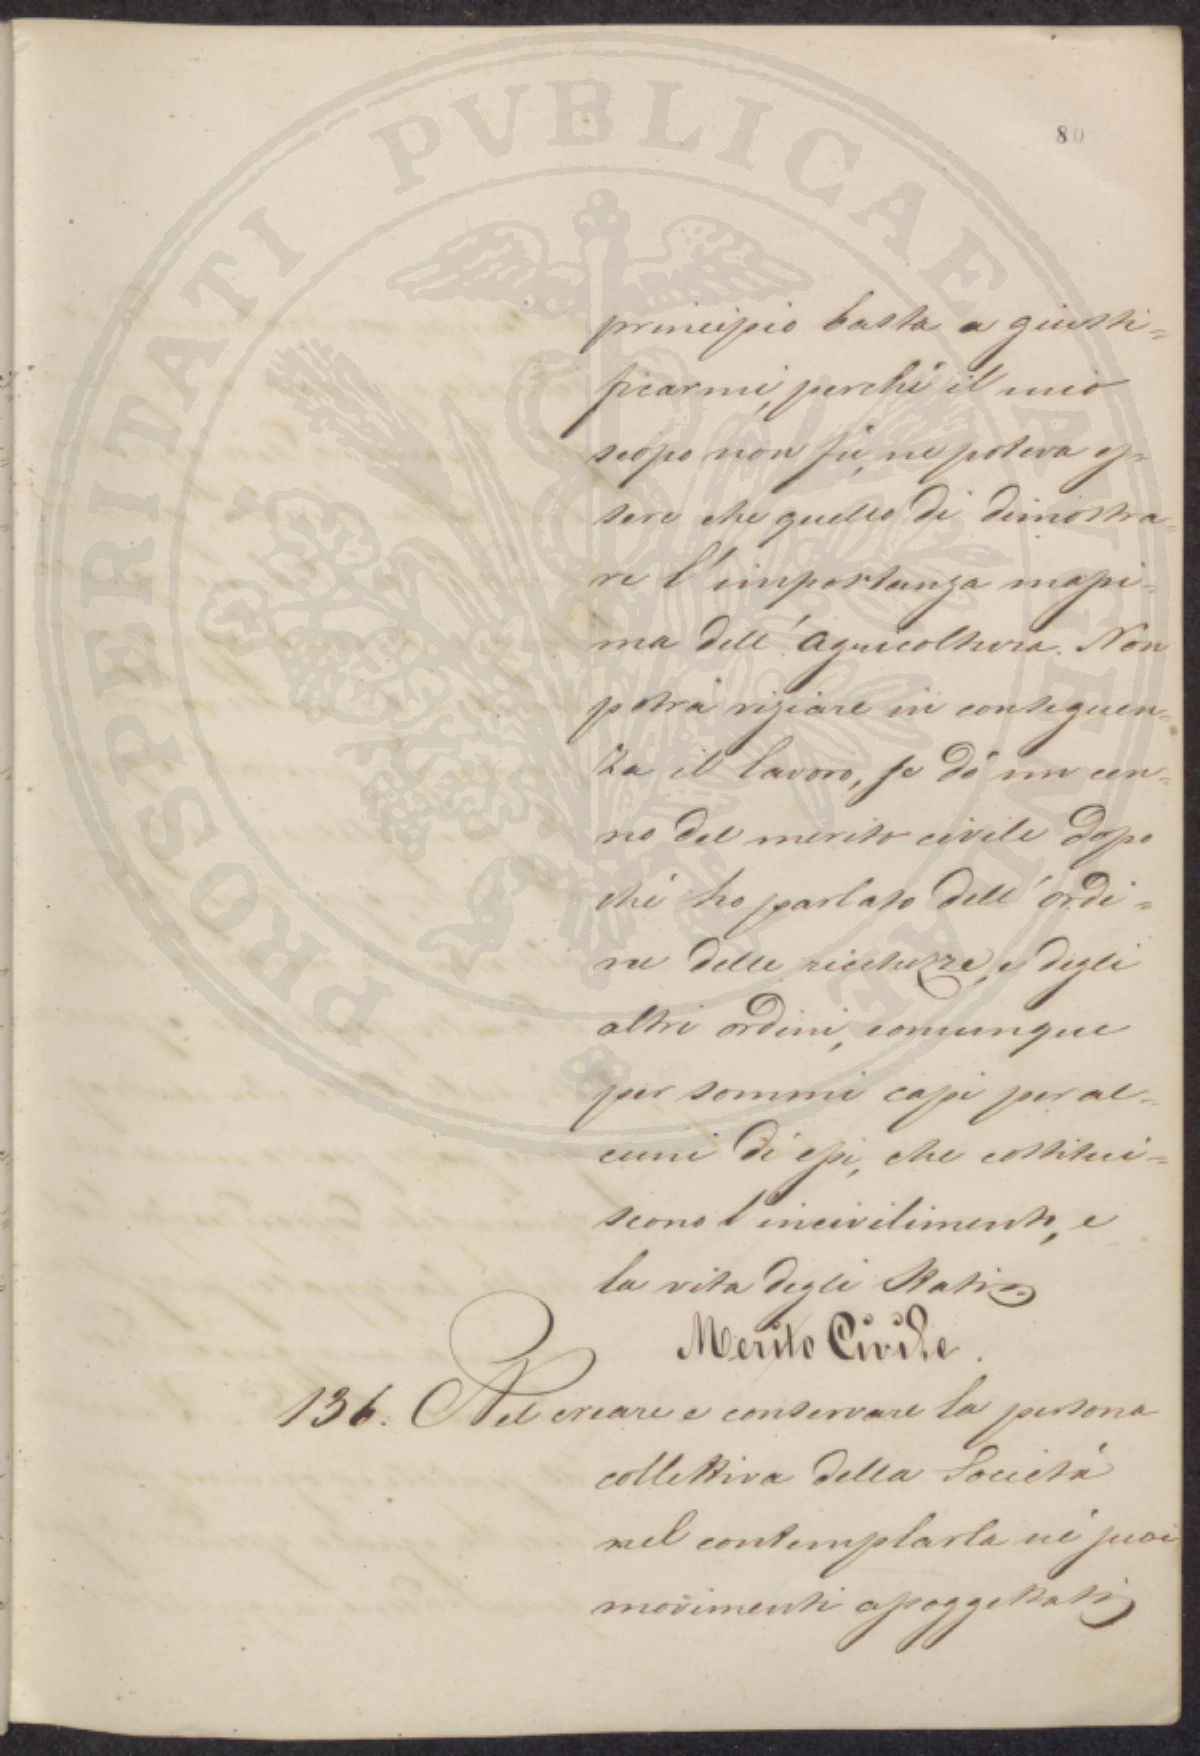 80
principio basta a giusti=
ficarmi, perché il mio
scopo non fù, ne poteva es=
sere che quello di dimostra=
re l'importanza massi=
ma dell'Agricoltura. Non
potrà in conseguen=
za il lavoro, se dò un cen=
no del merito civile dopo
ché ho parlato dell'ordi=
ne delle ricchezze, e degli
altri ordini, comunque
per sommi capi per al=
cuni di essi, che costitui=
scono l'incivilimento, e
la vita degli Stati.
Merito Civile.
136. Nel creare e conservare la persona
collettiva della Società
nel contemplarla né suoi
movimenti assoggettati
PROSPERITATI PVBLICAE AVGENDAE